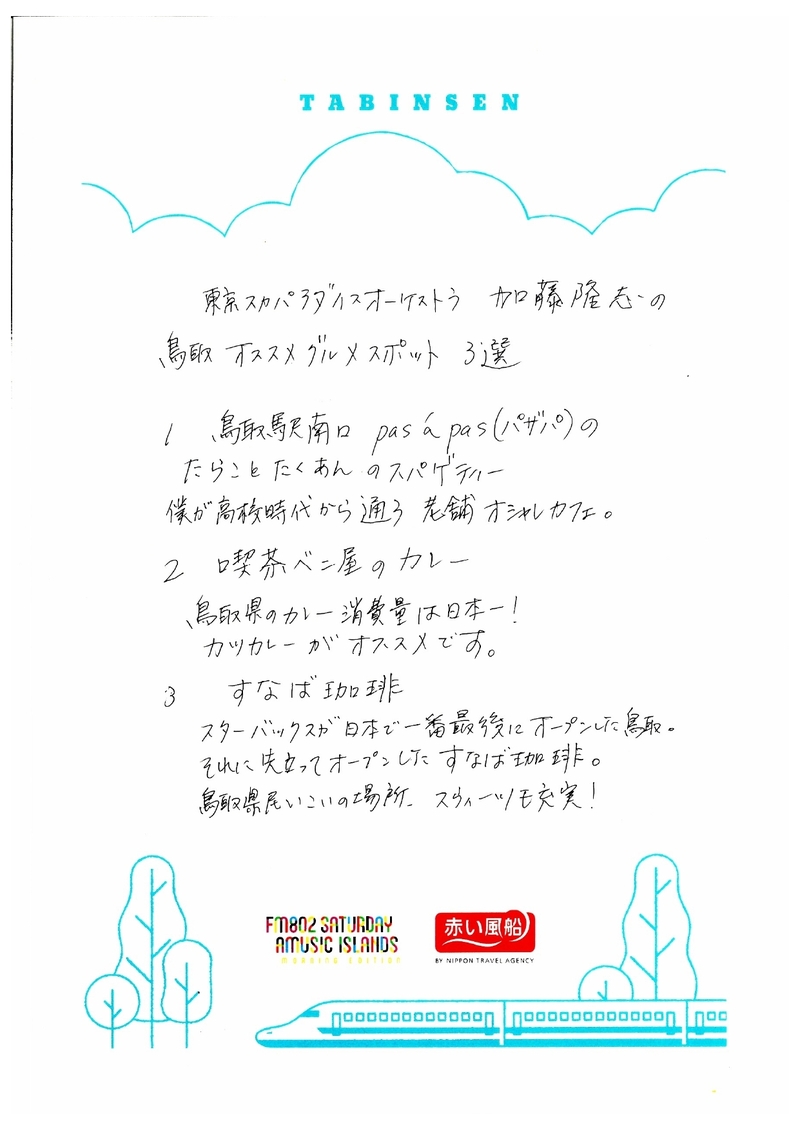 TABINSEN
東京スカパラダイスオーケストラ 加藤隆志の
鳥取 オススメグルメスポット 3選
1 鳥取駅南口 pas á pas(パザパ)の
たらことたくあんのスパゲティー
僕が高校時代から通う老舗オシャレカフェ。
2 喫茶ベニ屋のカレー
鳥取県のカレー消費量は日本一!
カツカレーがオススメです。
3 すなば珈琲
スターバックスが日本で一番最後にオープンした鳥取。
それに先立ってオープンしたすなば珈琲。
鳥取県民いこいの場所。スウィーツも充実!
FM802 SATURDAY
AMUSIC ISLANDS
MORNING EDITION
赤い風船
BY NIPPON TRAVEL AGENCY